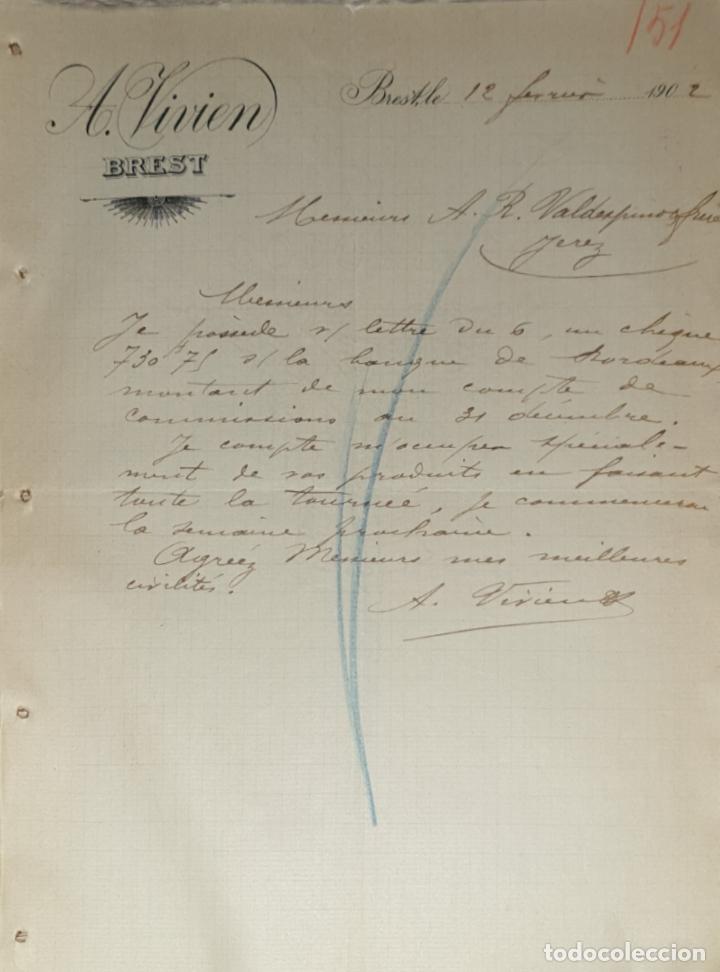 151
A. Vivien
BREST
Brest, le 12 février 1902
Messieurs A. R. Valdespino y frère
Jerez
Messieurs
Je possède v/ lettre du 6, un chèque
730 75 s/ la banque de Bordeaux
montant de mon compte de
commissions au 31 décembre.
Je compte m'occuper spéciale-
ment de vos produits en faisant
toute la tournée, je commencerai
la semaine prochaine.
Agréez Messieurs mes meilleures
civilités.
A. Vivien
todocoleccion.net